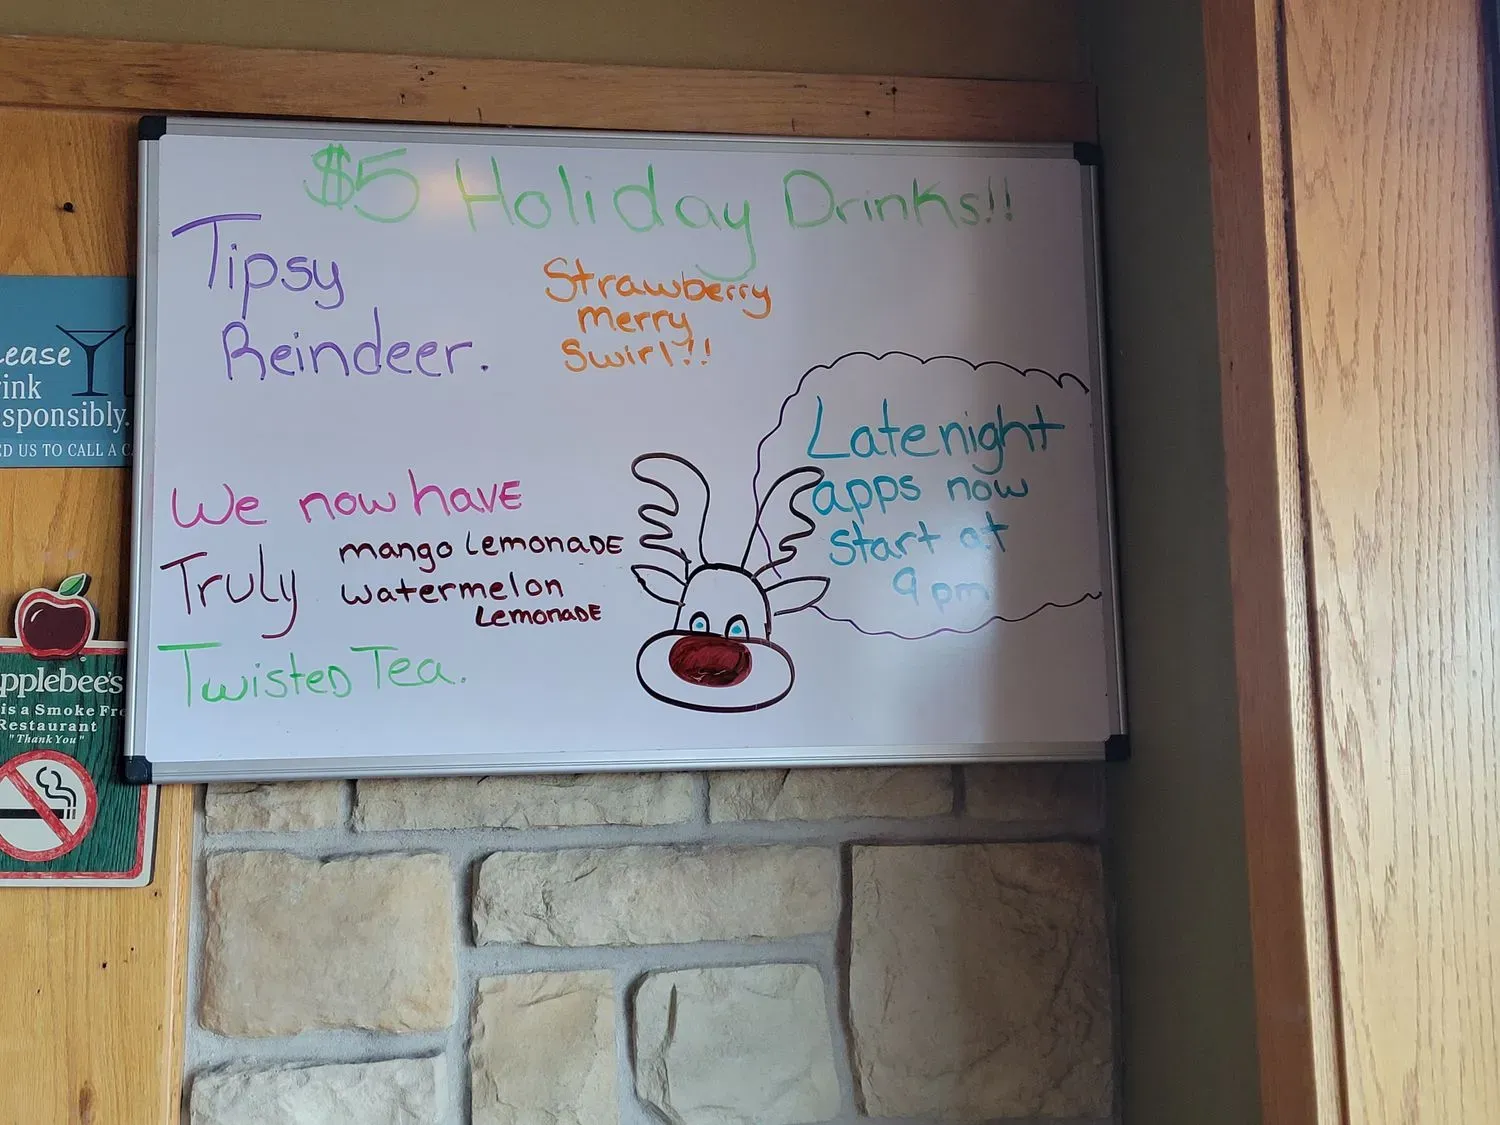 $5 Holiday Drinks!!
Tipsy
Reindeer.
Strawberry
merry
Swirl?!
Late night
apps now
start at
9 pm
We now have
Truly
mango Lemonade
watermelon
Lemonade
Twisted Tea.
ease
ink
sponsibly.
ED US TO CALL A C
pplebee's
is a Smoke Fre
Restaurant
"Thank You"